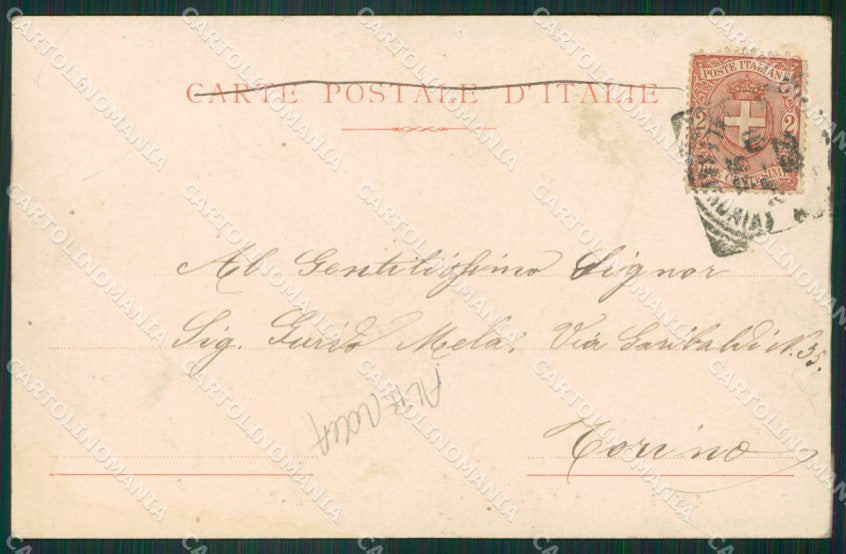 CARTE POSTALE D'ITALIE
POSTE ITALIANE
2 2
Al Gentilissimo Signor
Sig. Guido Mela, Via Garibaldi N. 35.
Torino
CARTOLINOMANIA